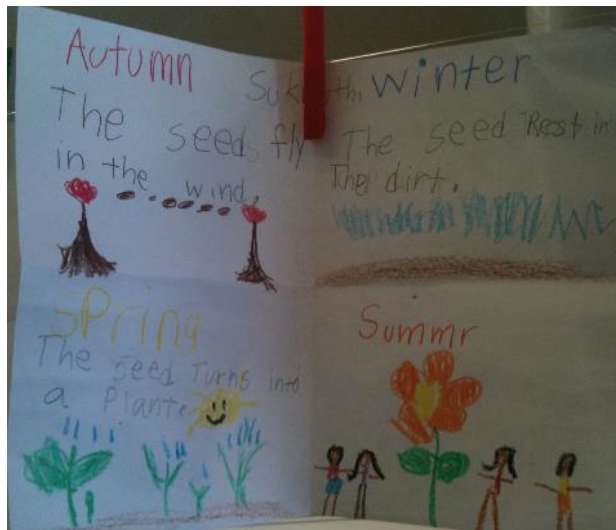 Autumn
The seeds fly
in the wind.
winter
The seed Rest in
The dirt.
Spring
The seed Turns into
a Plante
Summr